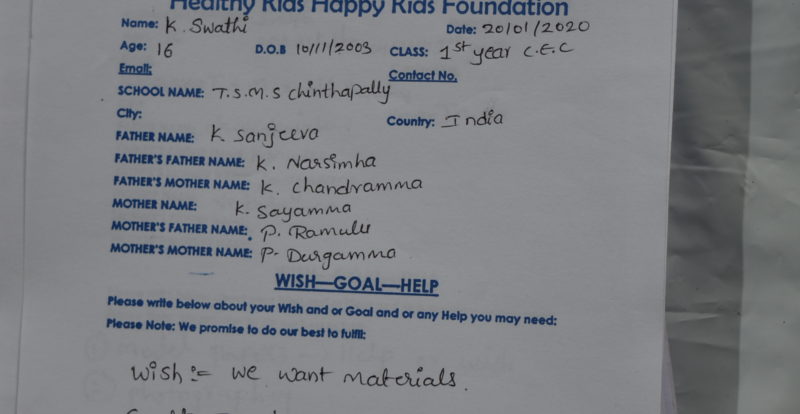 Healthy Kids Happy Kids Foundation
Name: K. Swathi Date: 20/01/2020
Age: 16 D.O.B 10/11/2003 CLASS: 1st year C.E.C
Email: Contact No.
SCHOOL NAME: T.S.M.S Chinthapally
City: Country: India
FATHER NAME: K Sanjeeva
FATHER'S FATHER NAME: K. Narsimha
FATHER'S MOTHER NAME: K. Chandramma
MOTHER NAME: K. Sayamma
MOTHER'S FATHER NAME: P. Ramulu
MOTHER'S MOTHER NAME: P. Durgamma
WISH—GOAL—HELP
Please write below about your Wish and or Goal and or any Help you may need:
Please Note: We promise to do our best to fulfil:
Wish :- We want materials.